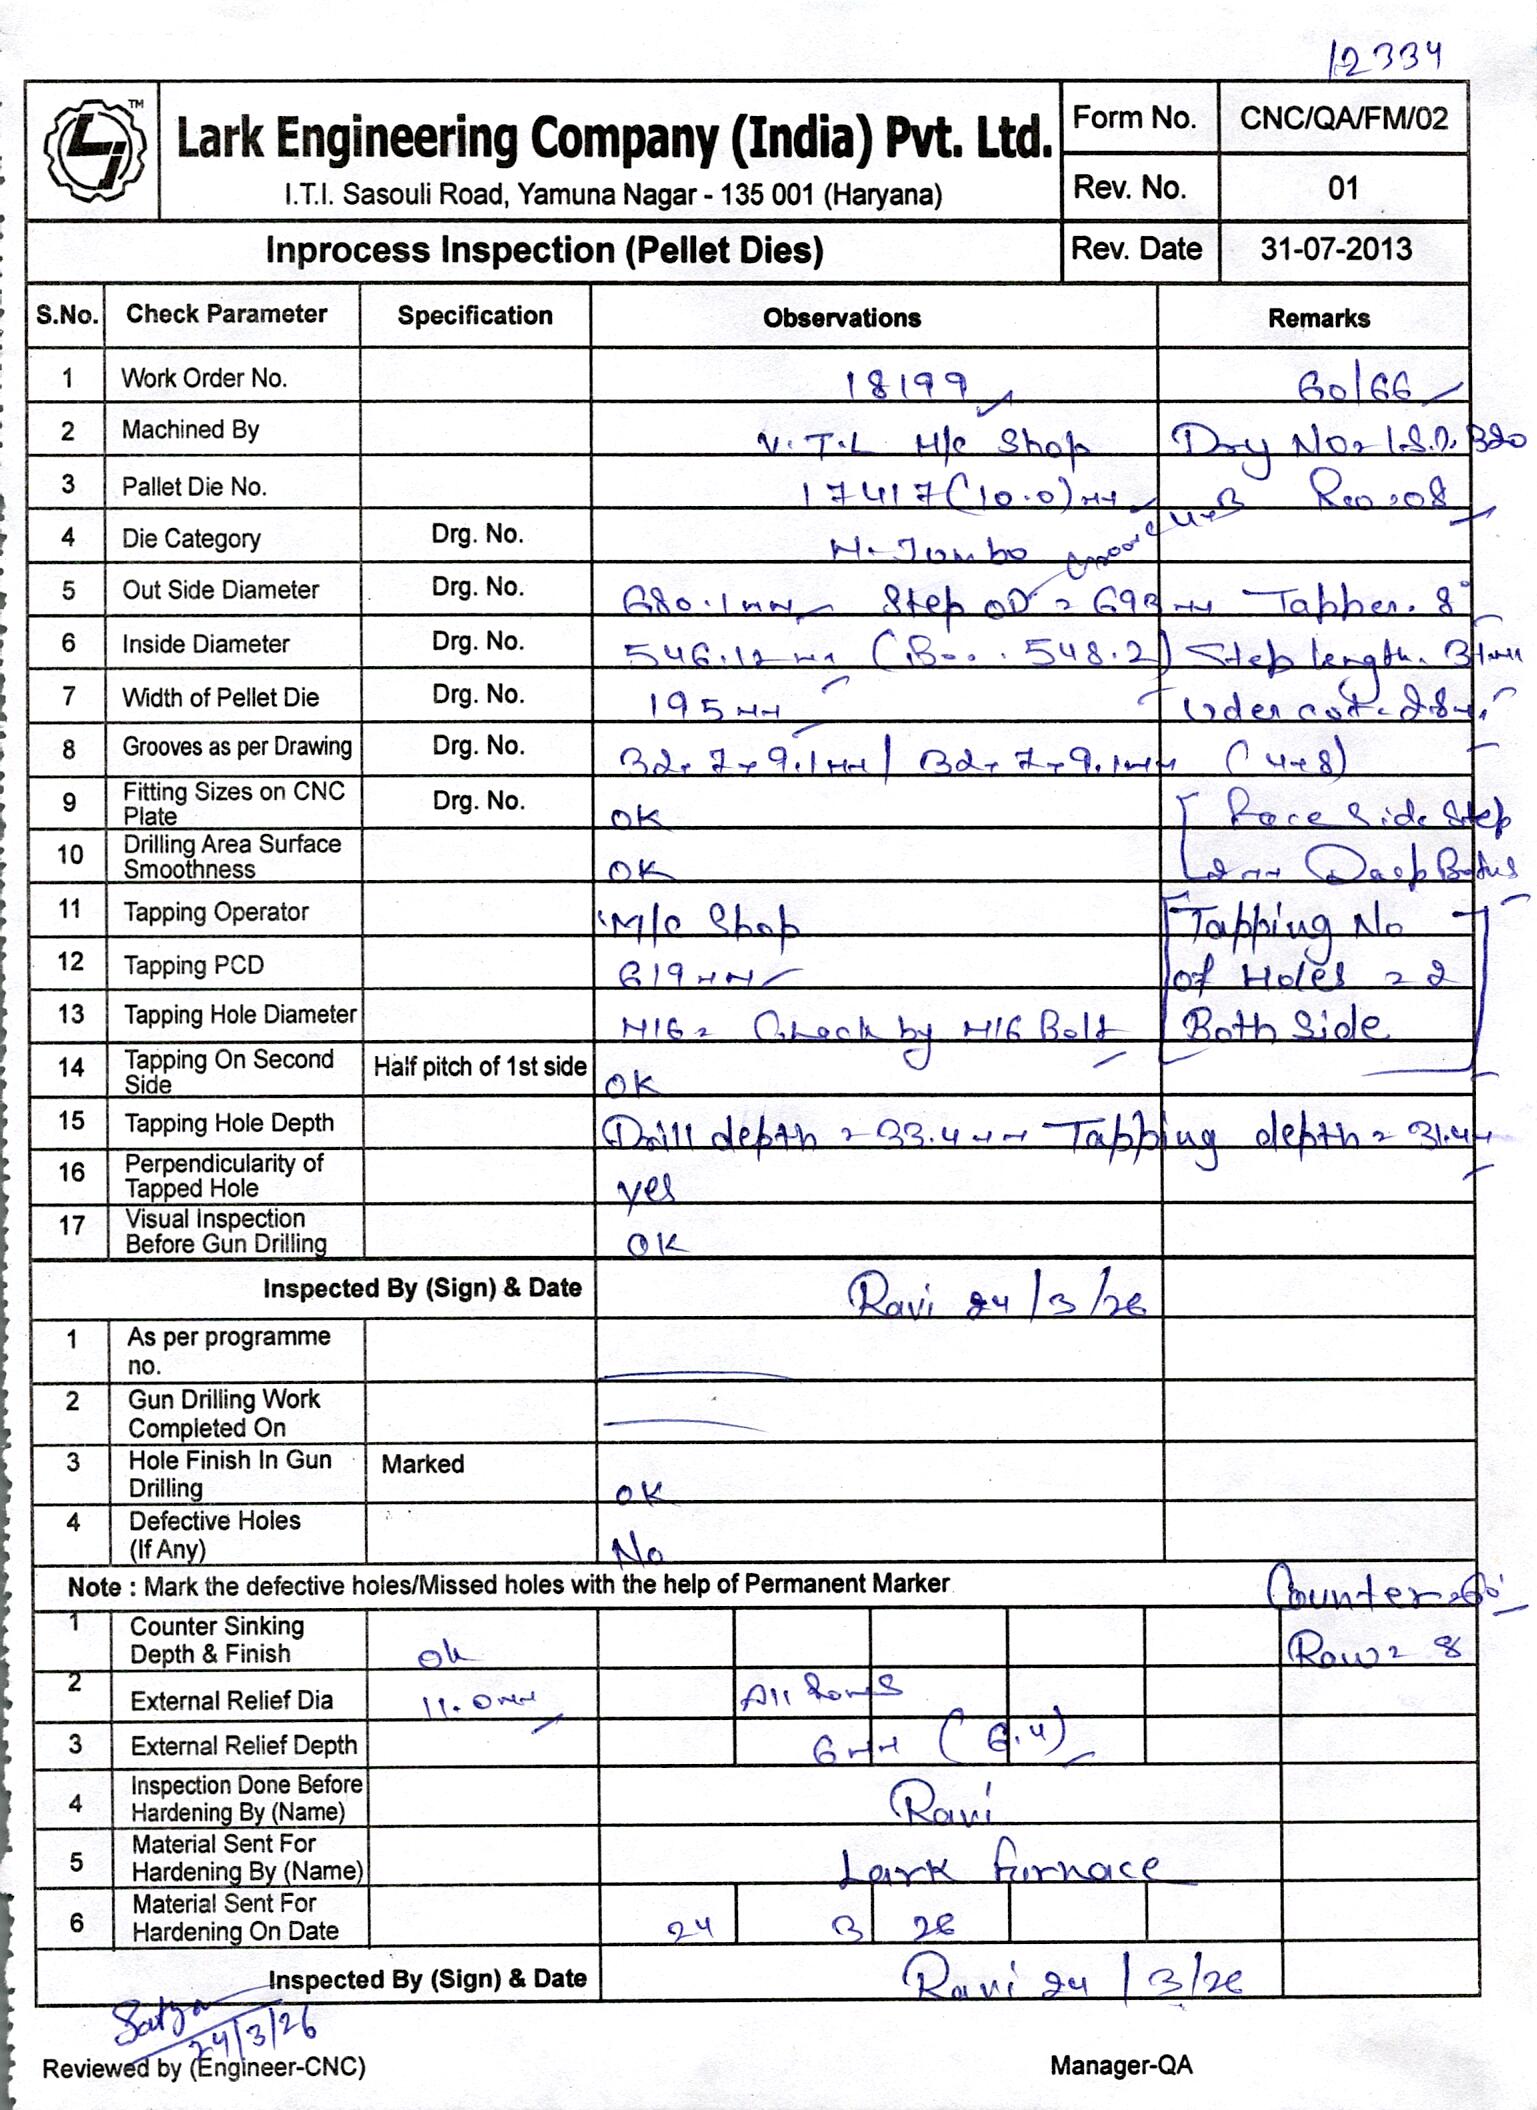 12334
LJ TM
Lark Engineering Company (India) Pvt. Ltd.
I.T.I. Sasouli Road, Yamuna Nagar - 135 001 (Haryana)
Form No. CNC/QA/FM/02
Rev. No. 01
Inprocess Inspection (Pellet Dies) Rev. Date 31-07-2013
S.No. Check Parameter Specification Observations Remarks
1 Work Order No. 18199 60/66
2 Machined By V.T.L M/c Shop Drg No = I.S.D. 320
3 Pallet Die No. 17417 (10.0) mm =08
4 Die Category Drg. No. M-Jumbo 4x3
5 Out Side Diameter Drg. No. 680.1mm Step OD = 693 mm Tapper. 8°
6 Inside Diameter Drg. No. 546.12mm ( 548.2) Step length. 31mm
7 Width of Pellet Die Drg. No. 195mm Under cut - 28mm
8 Grooves as per Drawing Drg. No. 32x7x9.1mm / 32x7x9.1mm (4x8)
9 Fitting Sizes on CNC Plate Drg. No. OK Race Side Step
10 Drilling Area Surface Smoothness OK 2mm Deep
11 Tapping Operator M/c Shop Tapping No
12 Tapping PCD 619mm of Holes = 2
13 Tapping Hole Diameter M16 = Check by M16 Bolt Both Side
14 Tapping On Second Side Half pitch of 1st side OK
15 Tapping Hole Depth Drill depth = 33.4mm Tapping depth = 31.4mm
16 Perpendicularity of Tapped Hole yes
17 Visual Inspection Before Gun Drilling OK
Inspected By (Sign) & Date Ravi 24/3/26
1 As per programme no.
2 Gun Drilling Work Completed On
3 Hole Finish In Gun Drilling Marked OK
4 Defective Holes (If Any) No
Note : Mark the defective holes/Missed holes with the help of Permanent Marker Counter = 60°
1 Counter Sinking Depth & Finish ok Row = 8
2 External Relief Dia 11.0mm All Rows
3 External Relief Depth 6mm (6.4)
4 Inspection Done Before Hardening By (Name) Ravi
5 Material Sent For Hardening By (Name) Lark furnace
6 Material Sent For Hardening On Date 24 3 26
Inspected By (Sign) & Date Ravi 24/3/26
Satya
24/3/26
Reviewed by (Engineer-CNC) Manager-QA